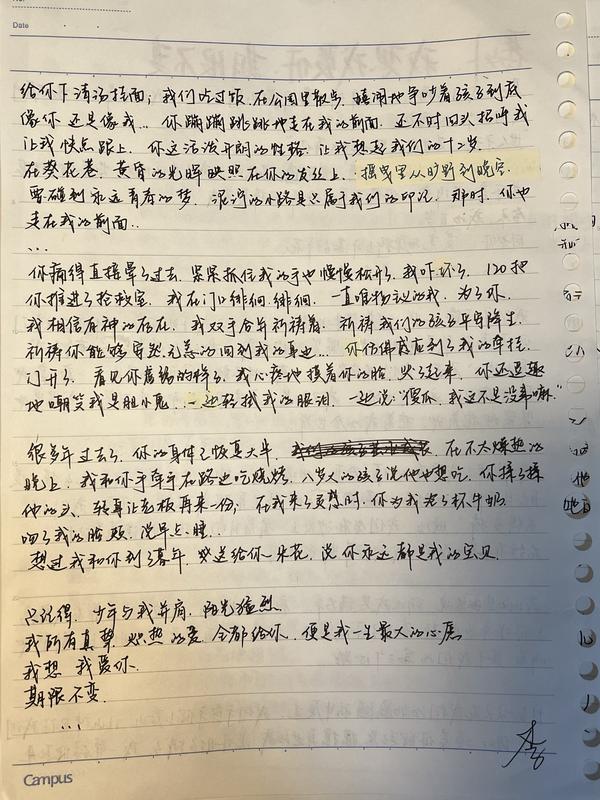 No.
Date
给你下清汤挂面；我们吃过饭，在公园里散步，嬉闹地争吵着孩子到底
像你还是像我… 你蹦蹦跳跳地走在我的前面，还不时回头招呼我
让我快点跟上，你这活泼开朗的性格，让我想起我们的十二岁，
在葵花巷，黄昏的光晖映照在你的发丝上，摇曳里从旷野到晚空，
要碰到永远青春的梦，泥泞的小路是只属于我们的印记，那时，你也
走在我的前面..
...
你痛得直接晕了过去，紧紧抓住我的手也慢慢松开了，我吓坏了，120把
你推进了抢救室，我在门口徘徊，徘徊，一直唯物主义的我，为了你，
我相信有神的存在，我双手合十祈祷着，祈祷我们的孩子平安降生，
祈祷你能够安然无恙的回到我的身边… 你仿佛感应到了我的牵挂，
门开了，看见你虚弱的样子，我心疼地摸着你的脸，哭了起来，你还逗趣
地嘲笑我是胆小鬼，一边轻拭我的眼泪，一边说："傻瓜，我这不是没事嘛"
很多年过去了，你的身体已恢复大半，在不太燥热的
晚上，我和你手牵手在路边吃烧烤，八岁大的孩子说他也想吃，你揉了揉
他的头，转身让老板再来一份；在我来了灵想时，你为我老了杯牛奶
吻了我的脸颊，说早点睡..
想过我和你到了暮年，我送给你一朵花，说你永远都是我的宝贝
只记得，少年与我并肩，阳光猛烈，
我所有真挚、炽热的爱，全都给你，便是我一生最大的心愿
我想，我爱你，
期限不变，
...
Campus